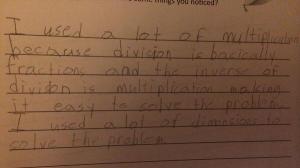 some things you noticed?
I used a lot of multiplication
because division is bacically
fractions and the inverse of
divison is multiplication making
it easy to solve the problem.
I used a lot of dimosions to
solve the problem